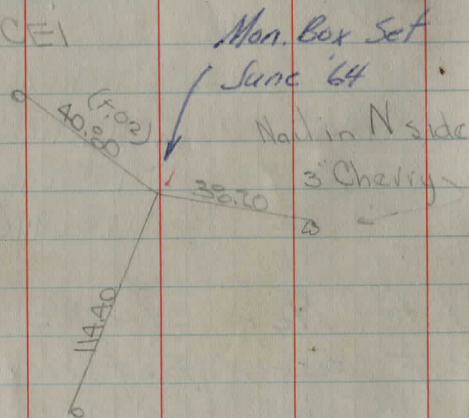 CEI
Mon. Box Set
June '64
(+.02)
40.80
Nail in N side
3" Cherry
38.20
114.40